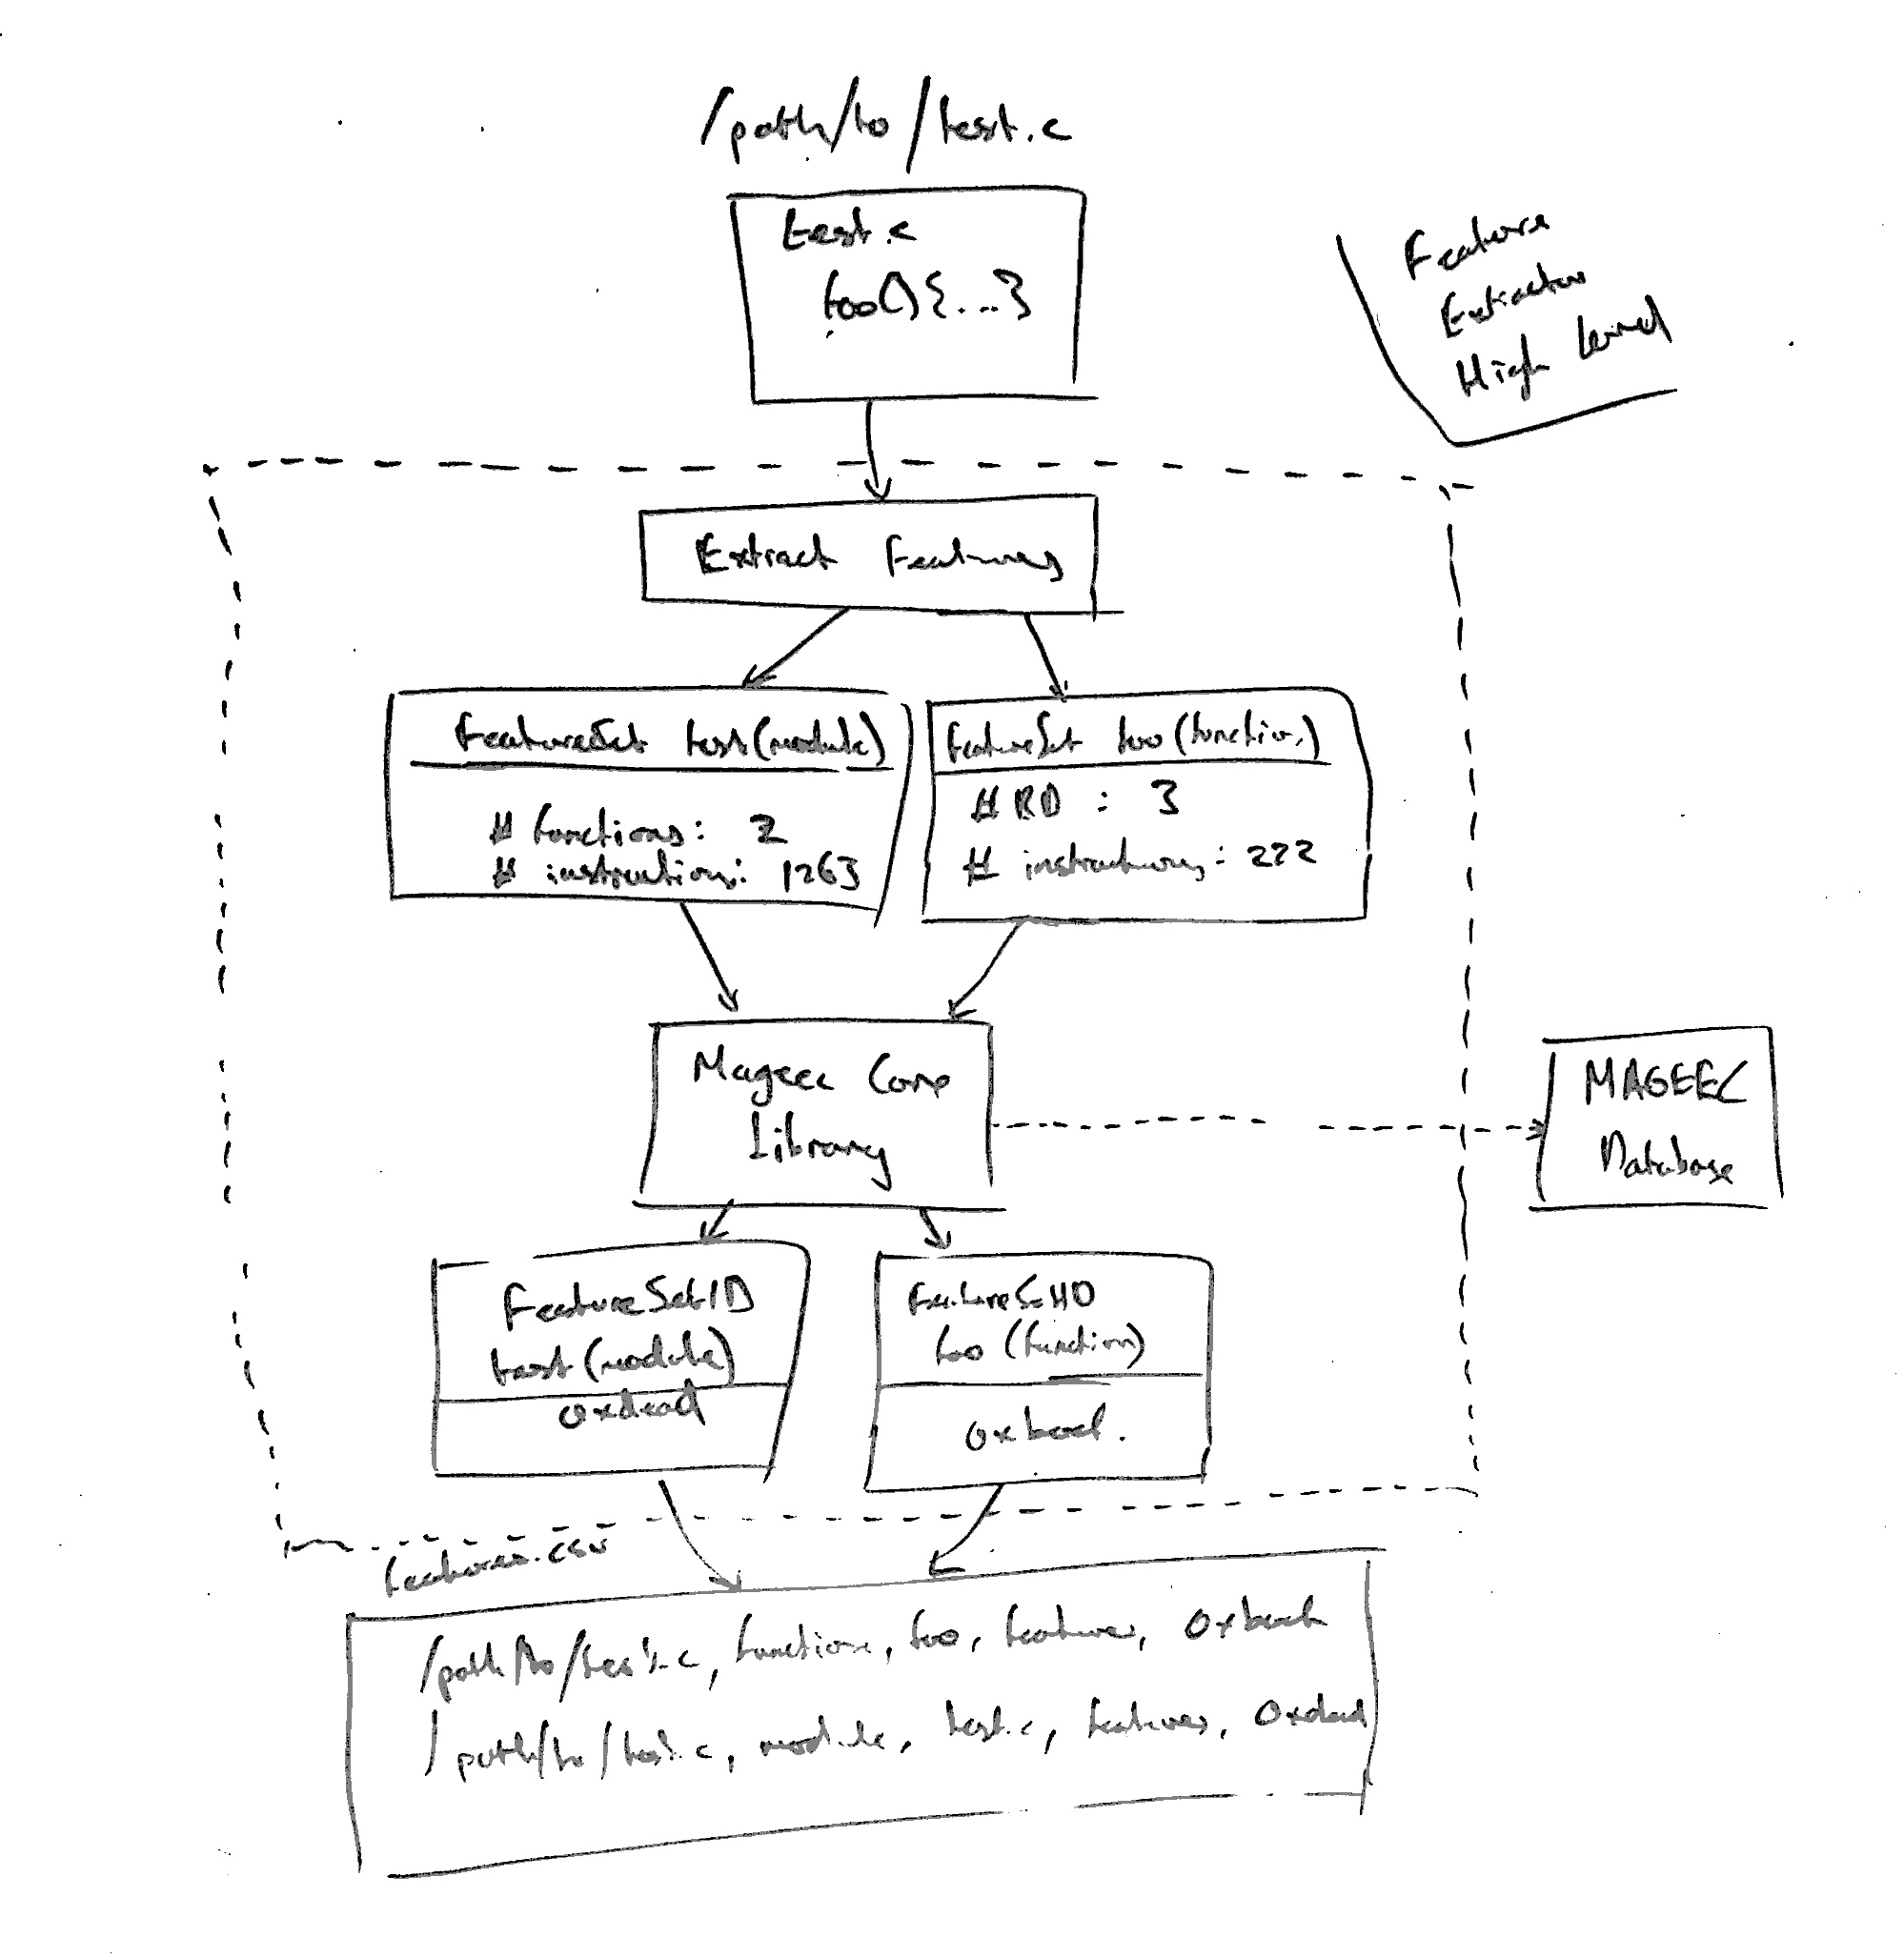 /path/to/test.c
test.c
foo(){...}
Feature
Extractor
High Level
Extract Features
FeatureSet test(module)
# functions: 2
# instructions: 1263
FeatureSet foo (function)
# BB : 3
# instructions: 222
Mageec Core
Library
MAGEEC
Database
FeatureSetID
test(module)
0xdead
FeatureSetID
foo (function)
0xbeef.
features.csv
/path/to/test.c, function, foo, features, 0xbeef
/path/to/test.c, module, test.c, features, 0xdead